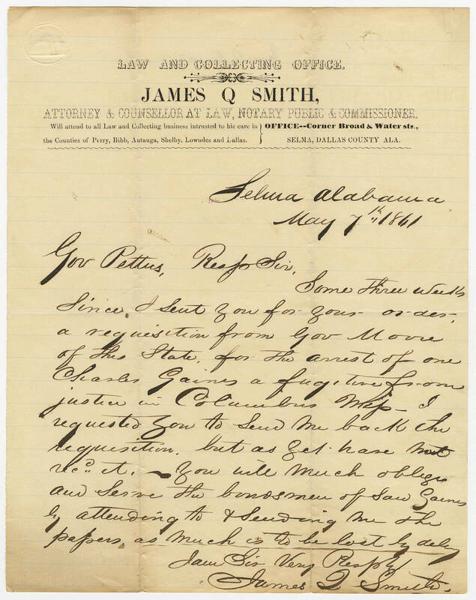 LAW AND COLLECTING OFFICE.
JAMES Q SMITH,
ATTORNEY & COUNSELLOR AT LAW, NOTARY PUBLIC & COMMISSIONER.
Will attend to all Law and Collecting business intrusted to his care in } OFFICE--Corner Broad & Water sts.,
the Counties of Perry, Bibb, Autauga, Shelby, Lowndes and Dallas. SELMA, DALLAS COUNTY ALA.
Selma Alabama
May 7th 1861
Gov Pettus, Resp Sir,
Some three weeks
Since, I sent you for your order,
a requisition from Gov Moore
of this State, for the arrest of one
Charles Gaines a fugitive from
justice in Columbus Miss — I
requested you to send me back the
requisition, but as yet have not
recd it. — You will much oblige
and serve the bondsmen of Saw Gaines
by attending to & sending me the
papers, as much is to be lost by delay
I am Sir Very Resply
James Q Smith.